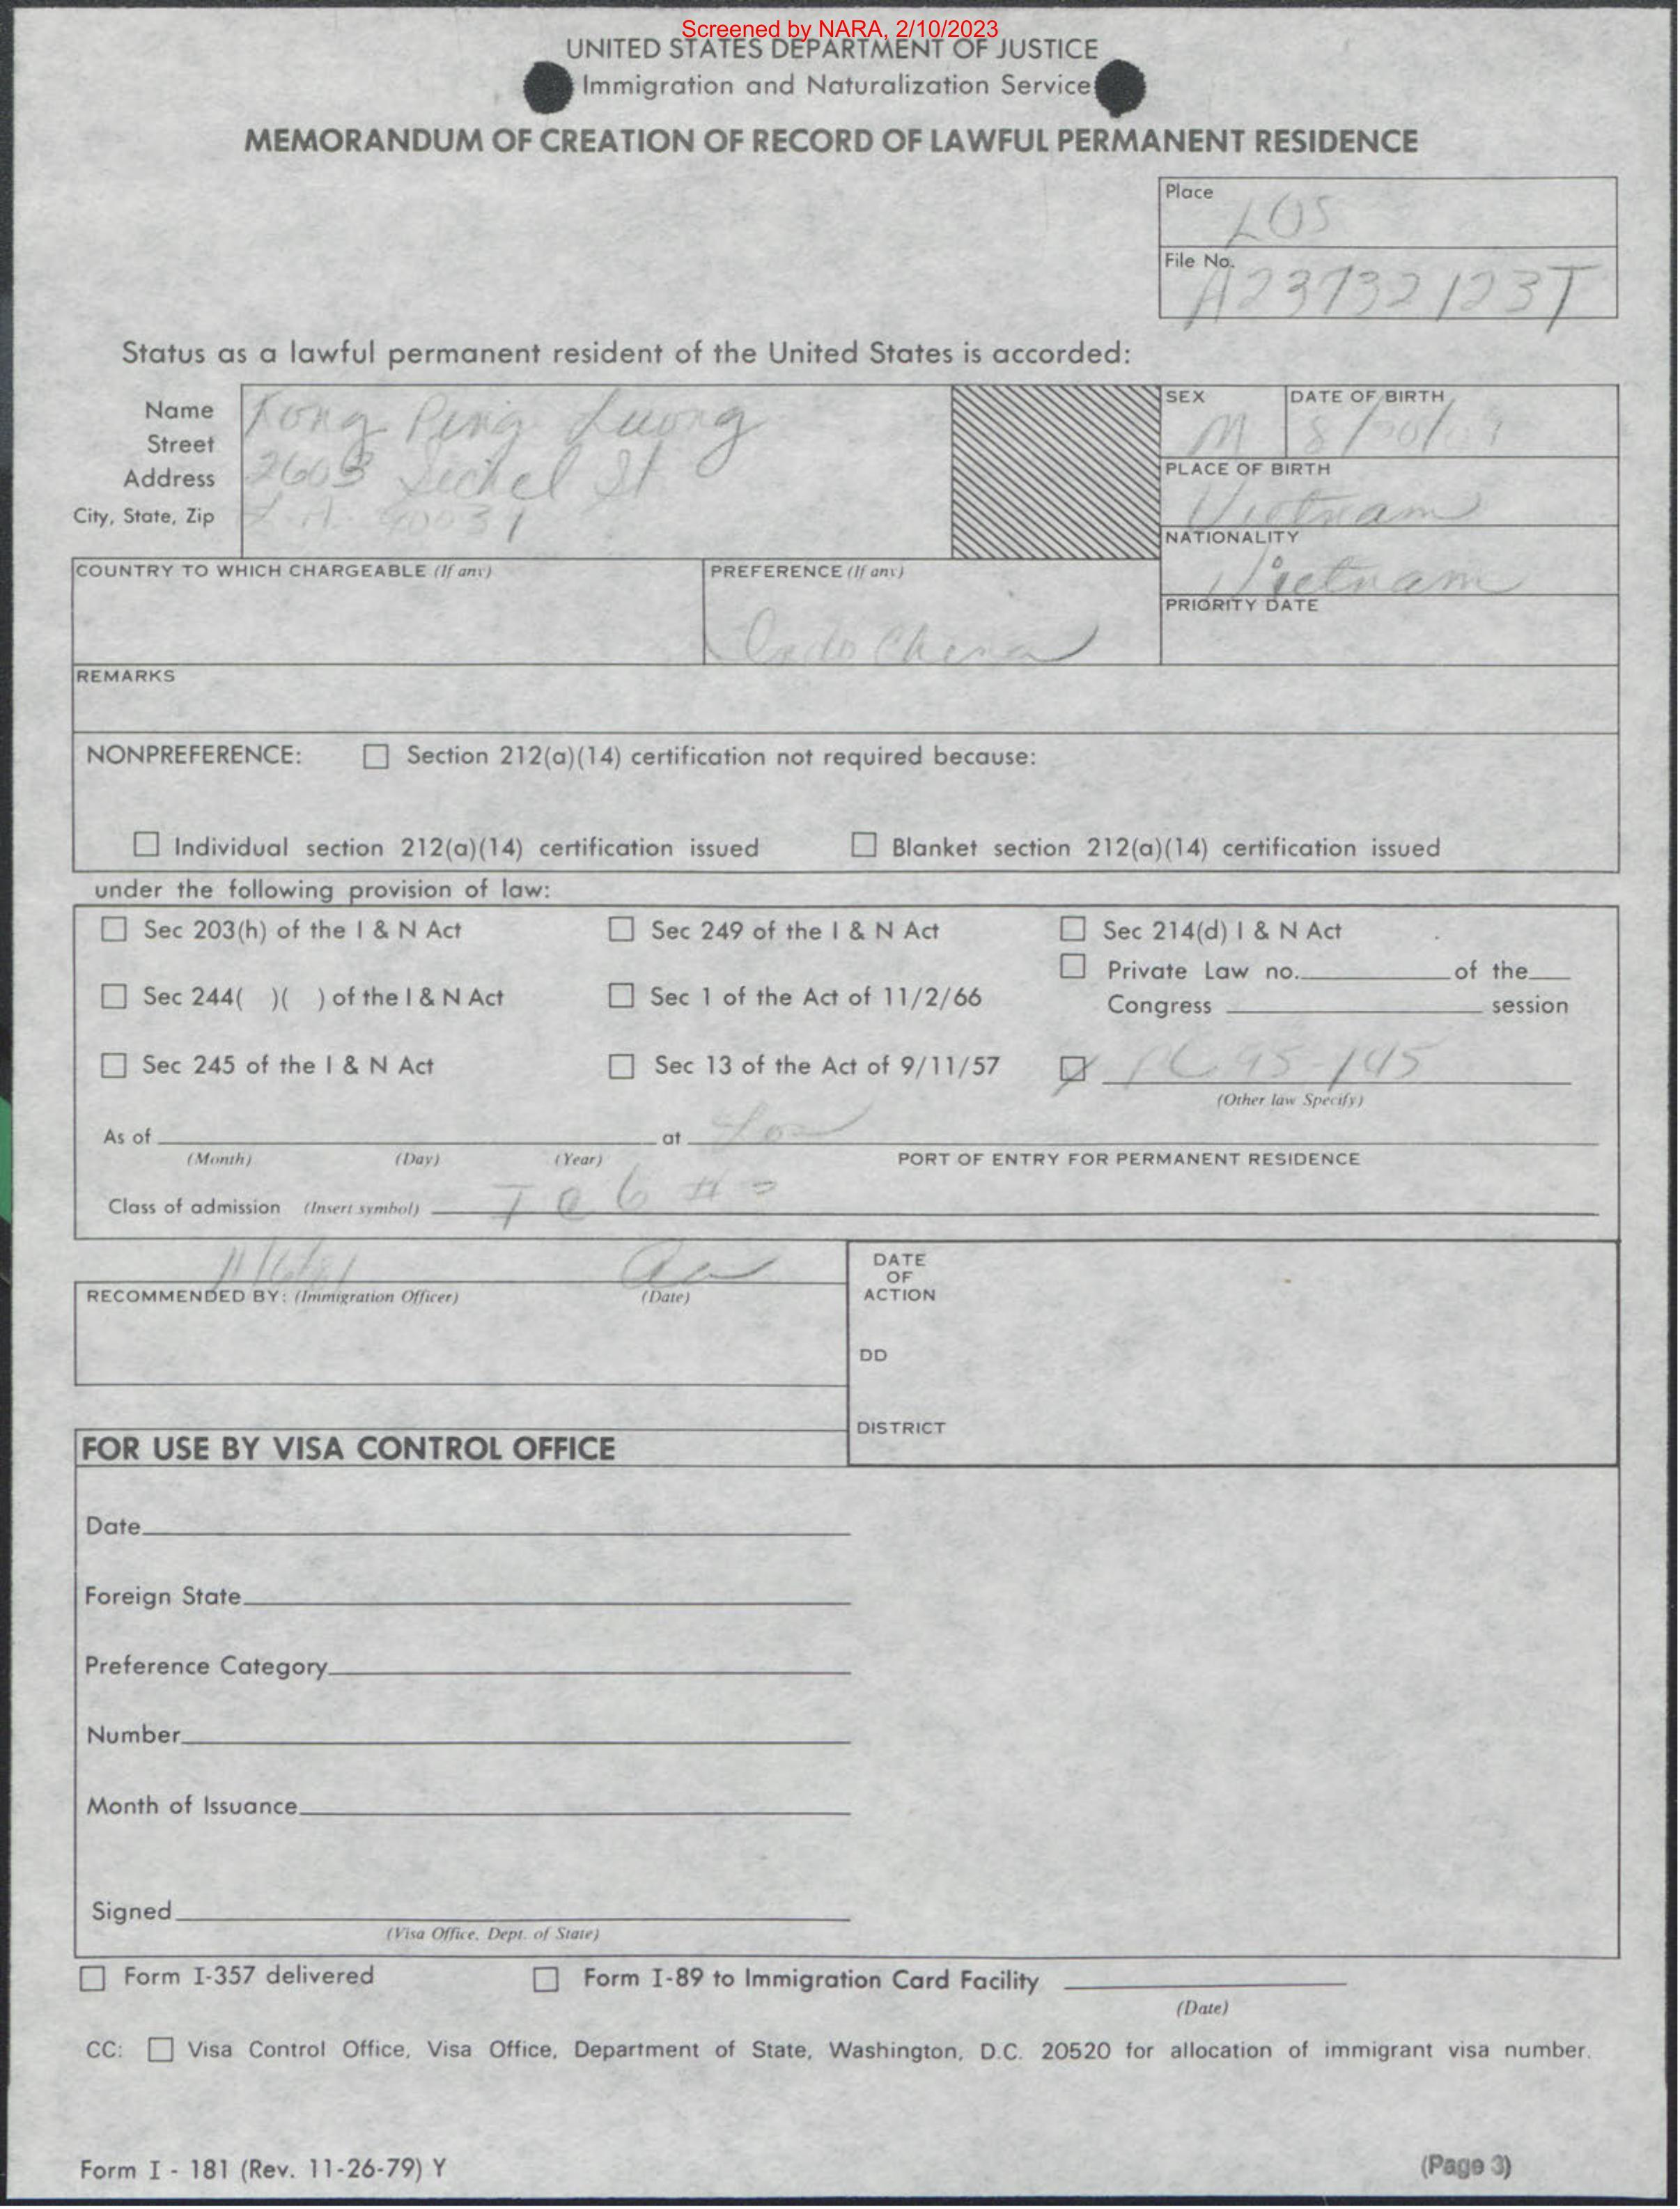 Screened by NARA, 2/10/2023
UNITED STATES DEPARTMENT OF JUSTICE
Immigration and Naturalization Service
MEMORANDUM OF CREATION OF RECORD OF LAWFUL PERMANENT RESIDENCE
Place
LOS
File No.
A23732123T
Status as a lawful permanent resident of the United States is accorded:
Name Kong Ping Luong
Street
Address 2603 Sichel St
City, State, Zip L.A. 90031
SEX
M
DATE OF BIRTH
8/
PLACE OF BIRTH
Vietnam
NATIONALITY
Vietnam
PRIORITY DATE
COUNTRY TO WHICH CHARGEABLE (If any)
PREFERENCE (If any)
Indo China
REMARKS
NONPREFERENCE: Section 212(a)(14) certification not required because:
Individual section 212(a)(14) certification issued Blanket section 212(a)(14) certification issued
under the following provision of law:
Sec 203(h) of the I & N Act Sec 249 of the I & N Act Sec 214(d) I & N Act
Private Law no. of the
Sec 244( )( ) of the I & N Act Sec 1 of the Act of 11/2/66 Congress session
Sec 245 of the I & N Act Sec 13 of the Act of 9/11/57 PL 95-145
(Other law Specify)
As of at Los
(Month) (Day) (Year) PORT OF ENTRY FOR PERMANENT RESIDENCE
Class of admission (Insert symbol)
RECOMMENDED BY: (Immigration Officer) (Date)
DATE
OF
ACTION
DD
DISTRICT
FOR USE BY VISA CONTROL OFFICE
Date
Foreign State
Preference Category
Number
Month of Issuance
Signed
(Visa Office, Dept. of State)
Form I-357 delivered Form I-89 to Immigration Card Facility
(Date)
CC: Visa Control Office, Visa Office, Department of State, Washington, D.C. 20520 for allocation of immigrant visa number.
Form I - 181 (Rev. 11-26-79) Y
(Page 3)